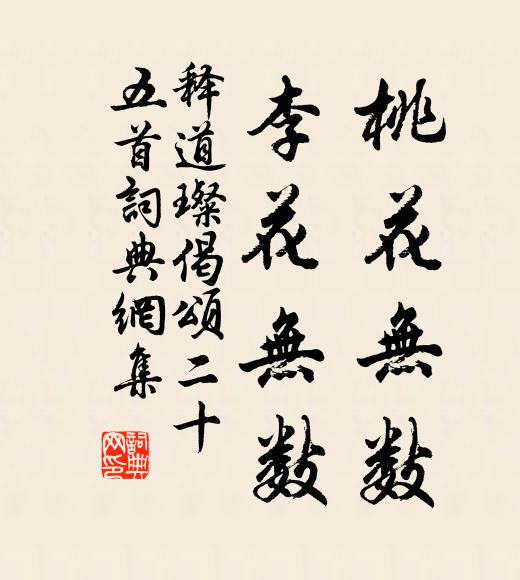 桃花無數
李花無數
释道璨偈頌二十
五首詞典網集
詞典网印